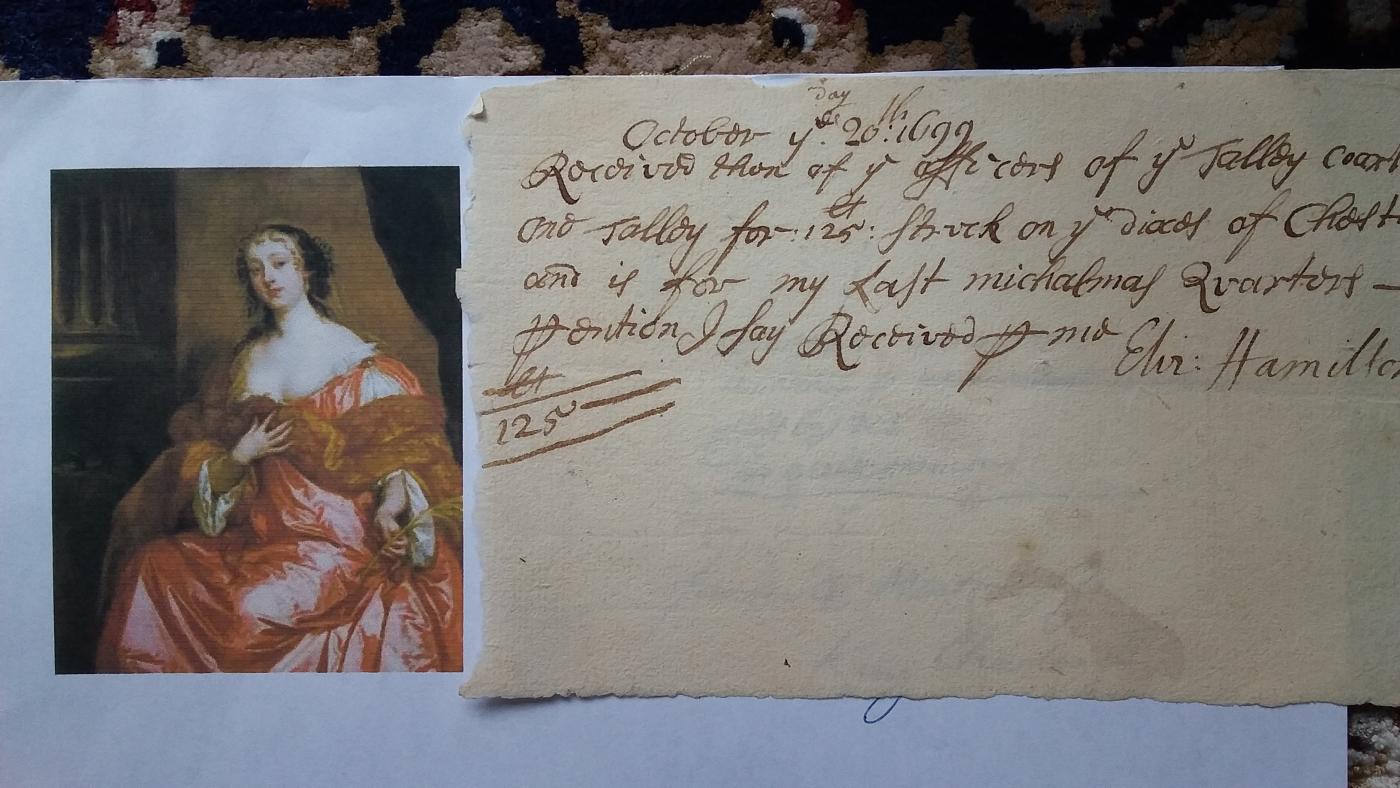 day
October yᵉ: 20:th 1699
Received then of yᵉ officers of yᵉ Talley Coart
one Talley for: 125:lt: struck on yᵉ dices of Chest
and is for my Last michalmas Quarters —
Pention I say Received P me Eliz: Hamilton
lt
125